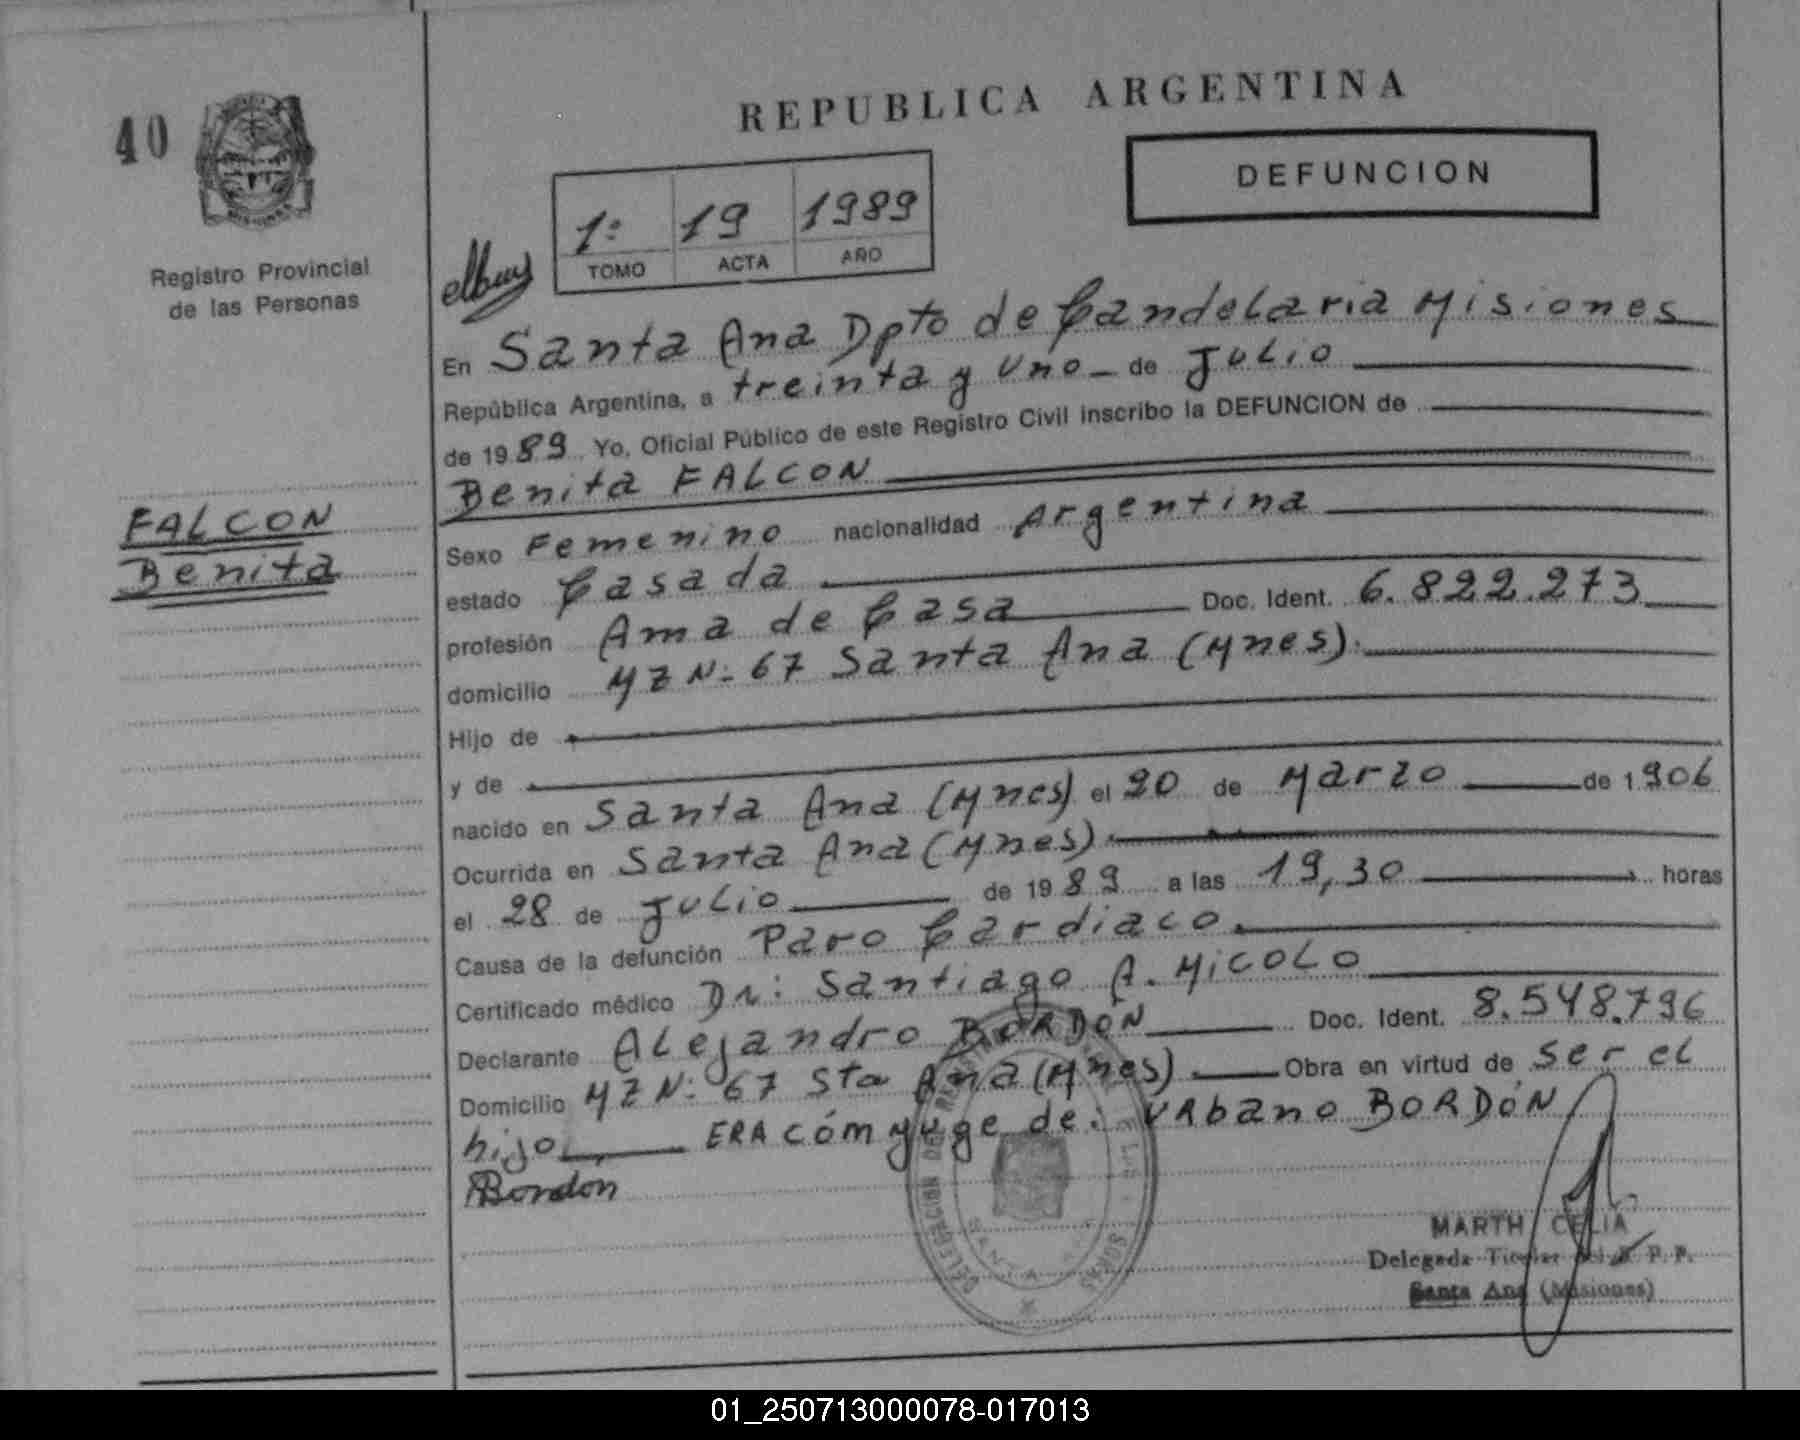 40
REPUBLICA ARGENTINA
DEFUNCION
1º 19 1989
TOMO ACTA AÑO
Registro Provincial
de las Personas
FALCON
Benita
En Santa Ana Dpto de Candelaria Misiones
República Argentina, a treinta y uno de Julio
de 1989 Yo, Oficial Público de este Registro Civil inscribo la DEFUNCION de
Benita FALCON
Sexo Femenino nacionalidad Argentina
estado Casada
profesión Ama de Casa Doc. Ident. 6.822.273
domicilio MZ Nº 67 Santa Ana (Mnes).
Hijo de
y de
nacido en Santa Ana (Mnes) el 20 de Marzo de 1906
Ocurrida en Santa Ana (Mnes).
el 28 de Julio de 1989 a las 19,30 horas
Causa de la defunción Paro Cardiaco.
Certificado médico Dr: Santiago A. MICOLO
Declarante Alejandro BORDON Doc. Ident. 8.548.796
Domicilio MZ Nº 67 Sta Ana (Mnes). Obra en virtud de ser el
hijo ERA cómyuge de: URbano BORDÓN
ABordon
DELEGACION DEL REGISTRO
SANTA
MARTH CELIA
Delegada Titular del R. P. P.
Santa Ana (Misiones)
01_250713000078-017013